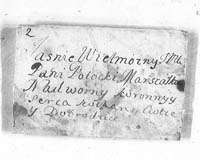 2
Jasnie Wielmozny JMć
Pani Potocki Marszałk
Nadworny koronnyy
Serca kochany Ciotce
y Dobrodice